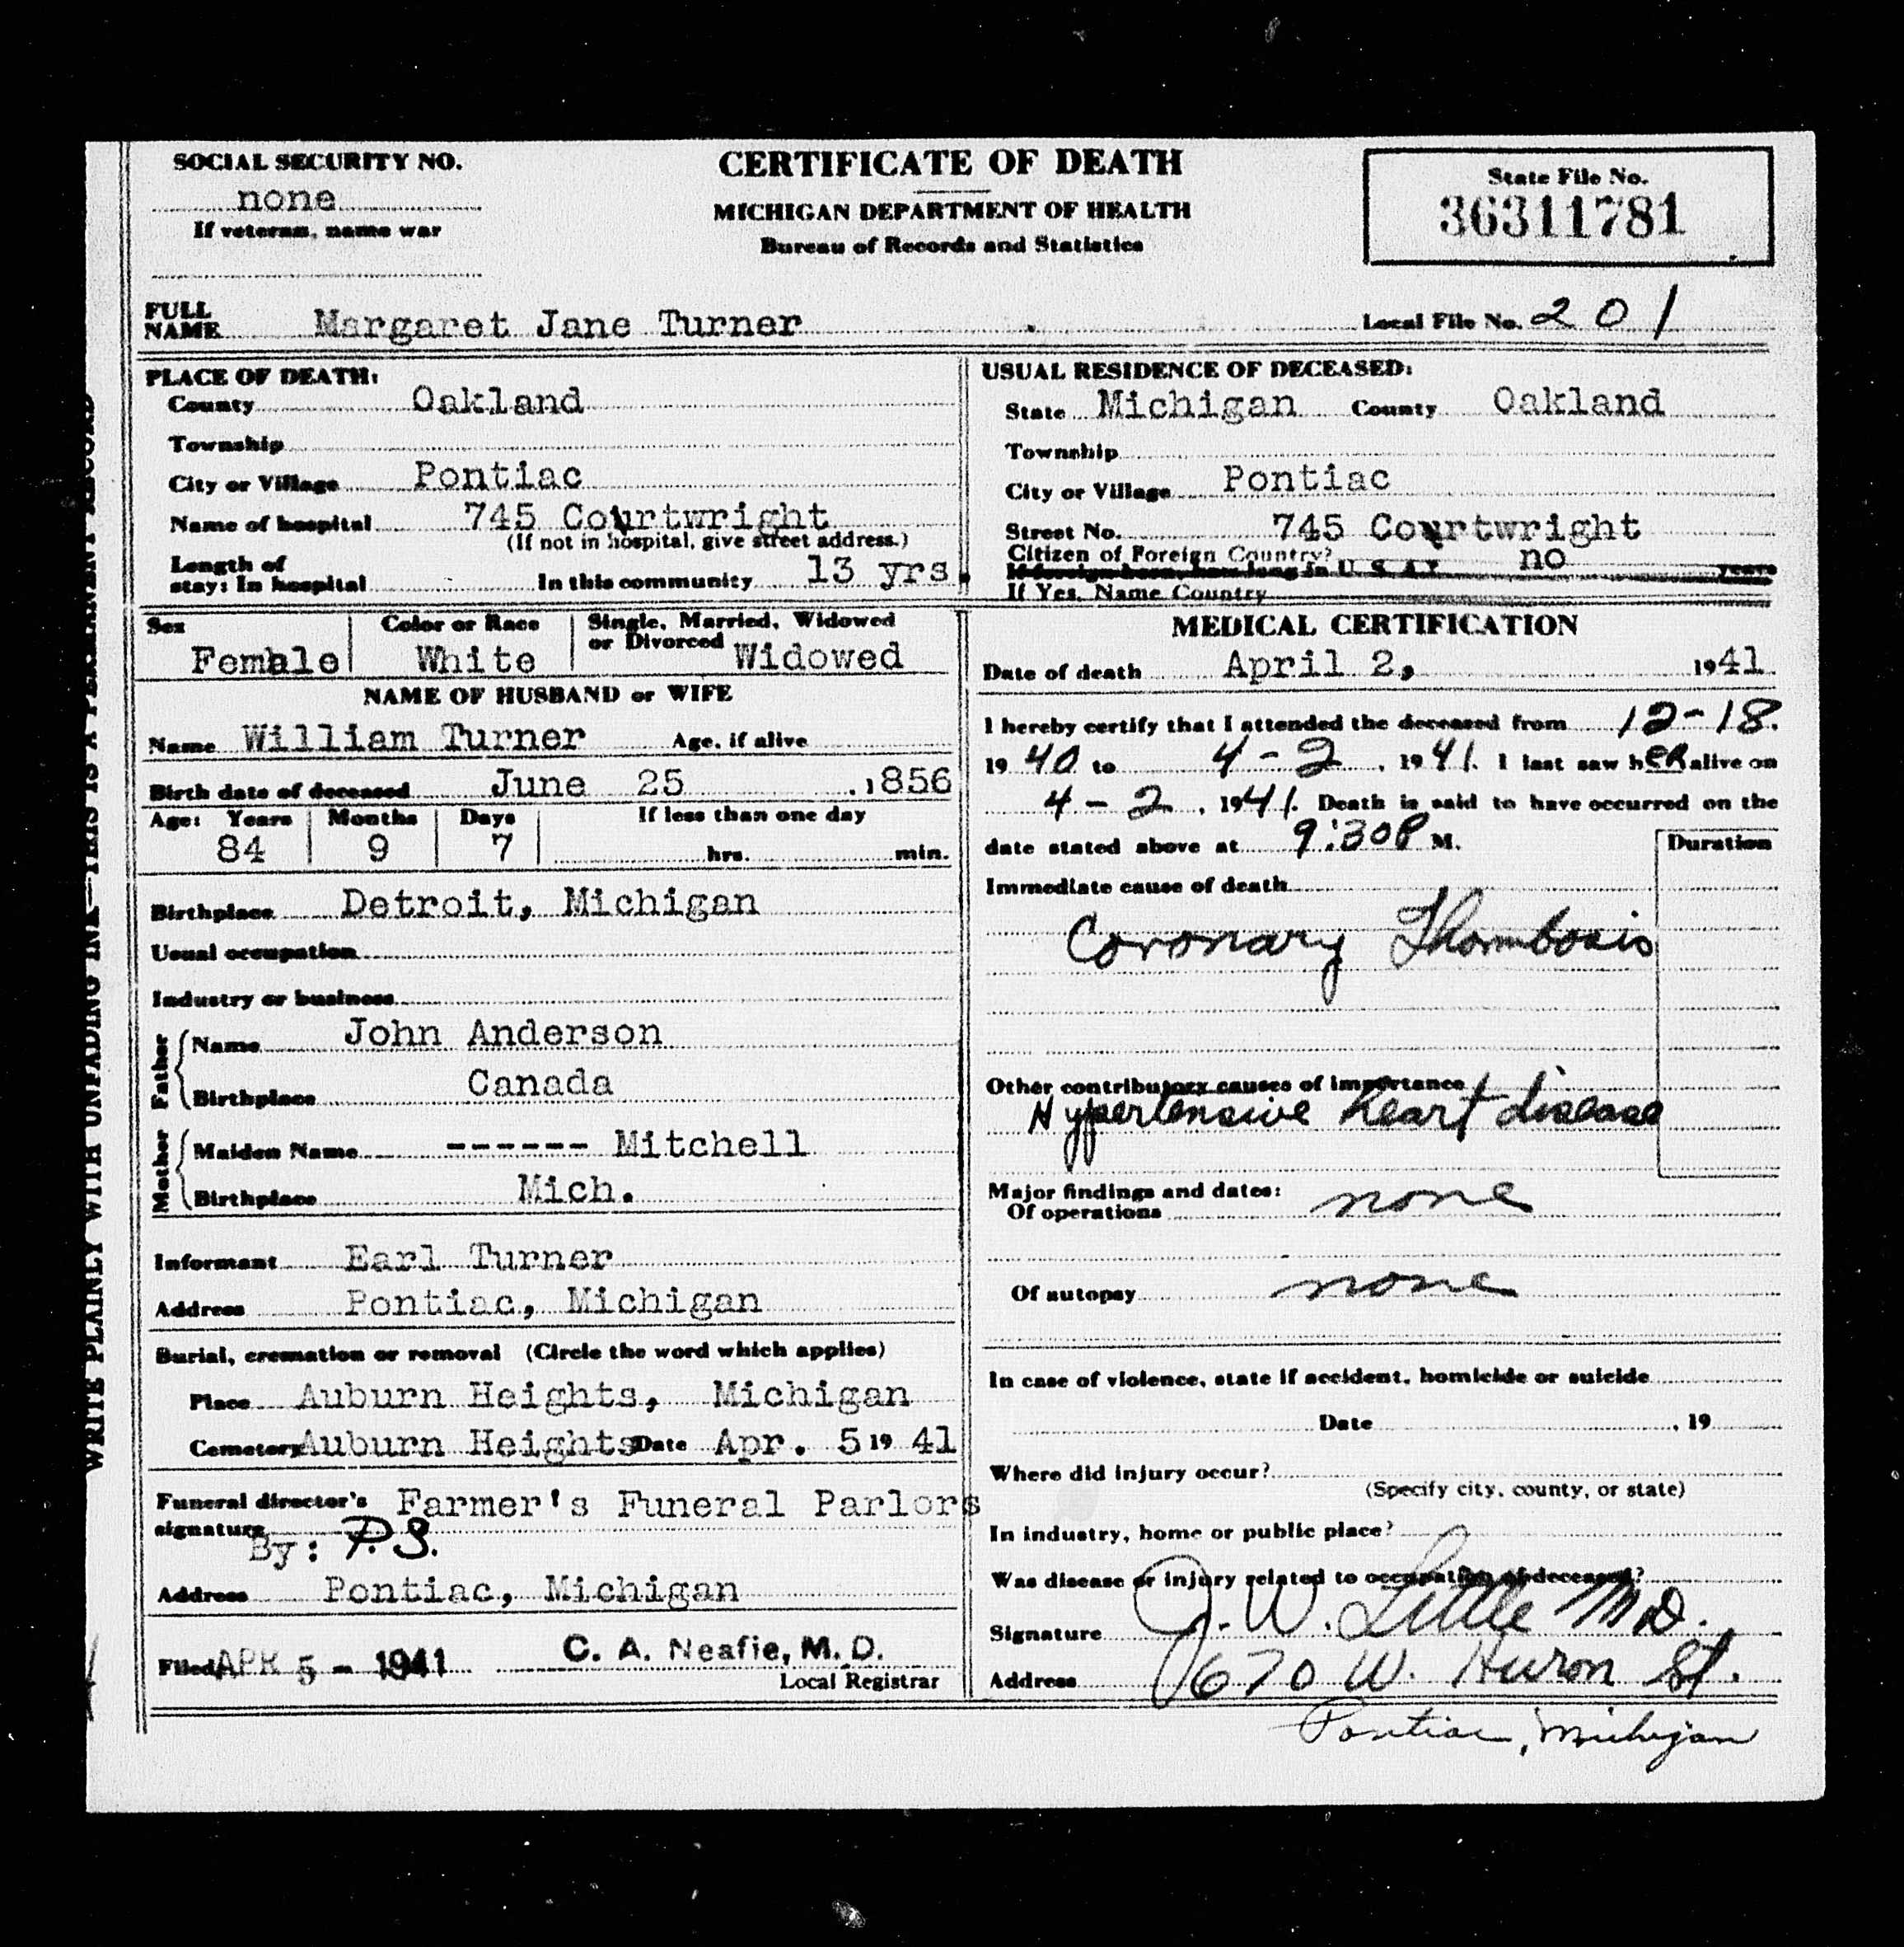 SOCIAL SECURITY NO.
none
If veteran, name war
CERTIFICATE OF DEATH
MICHIGAN DEPARTMENT OF HEALTH
Bureau of Records and Statistics
State File No.
36311781
FULL NAME Margaret Jane Turner
Local File No. 201
PLACE OF DEATH:
County Oakland
Township
City or Village Pontiac
Name of hospital 745 Courtwright
(If not in hospital, give street address.)
Length of
stay: In hospital In this community 13 yrs.
USUAL RESIDENCE OF DECEASED:
State Michigan County Oakland
Township
City or Village Pontiac
Street No. 745 Courtwright
Citizen of Foreign Country? no
If foreign born, how long in U. S. A.? years
If Yes, Name Country
Sex Female
Color or Race White
Single, Married, Widowed
or Divorced Widowed
NAME OF HUSBAND or WIFE
Name William Turner Age, if alive
Birth date of deceased June 25 , 1856
Age: Years Months Days If less than one day
84 9 7 hrs. min.
Birthplace Detroit, Michigan
Usual occupation
Industry or business
Father
Name John Anderson
Birthplace Canada
Mother
Maiden Name ------ Mitchell
Birthplace Mich.
Informant Earl Turner
Address Pontiac, Michigan
Burial, cremation or removal (Circle the word which applies)
Place Auburn Heights, Michigan
Cemetery Auburn Heights Date Apr. 5 19 41
Funeral director's Farmer's Funeral Parlors
signature By: P.S.
Address Pontiac, Michigan
Filed APR 5 - 1941 C. A. Neafie, M. D.
Local Registrar
MEDICAL CERTIFICATION
Date of death April 2, 1941
I hereby certify that I attended the deceased from 12-18.
19 40 to 4-2, 1941. I last saw her alive on
4-2, 1941. Death is said to have occurred on the
date stated above at 9:30P M.
Duration
Immediate cause of death
Coronary Thombosis
Other contributory causes of importance
Hypertensive heart disease
Major findings and dates:
Of operations none
Of autopsy none
In case of violence, state if accident, homicide or suicide
Date , 19
Where did injury occur?
(Specify city, county, or state)
In industry, home or public place?
Was disease or injury related to occupation of deceased?
Signature J. W. Little M.D.
Address 670 W. Huron St.
Pontiac, Michigan
WRITE PLAINLY WITH UNFADING INK—THIS IS A PERMANENT RECORD